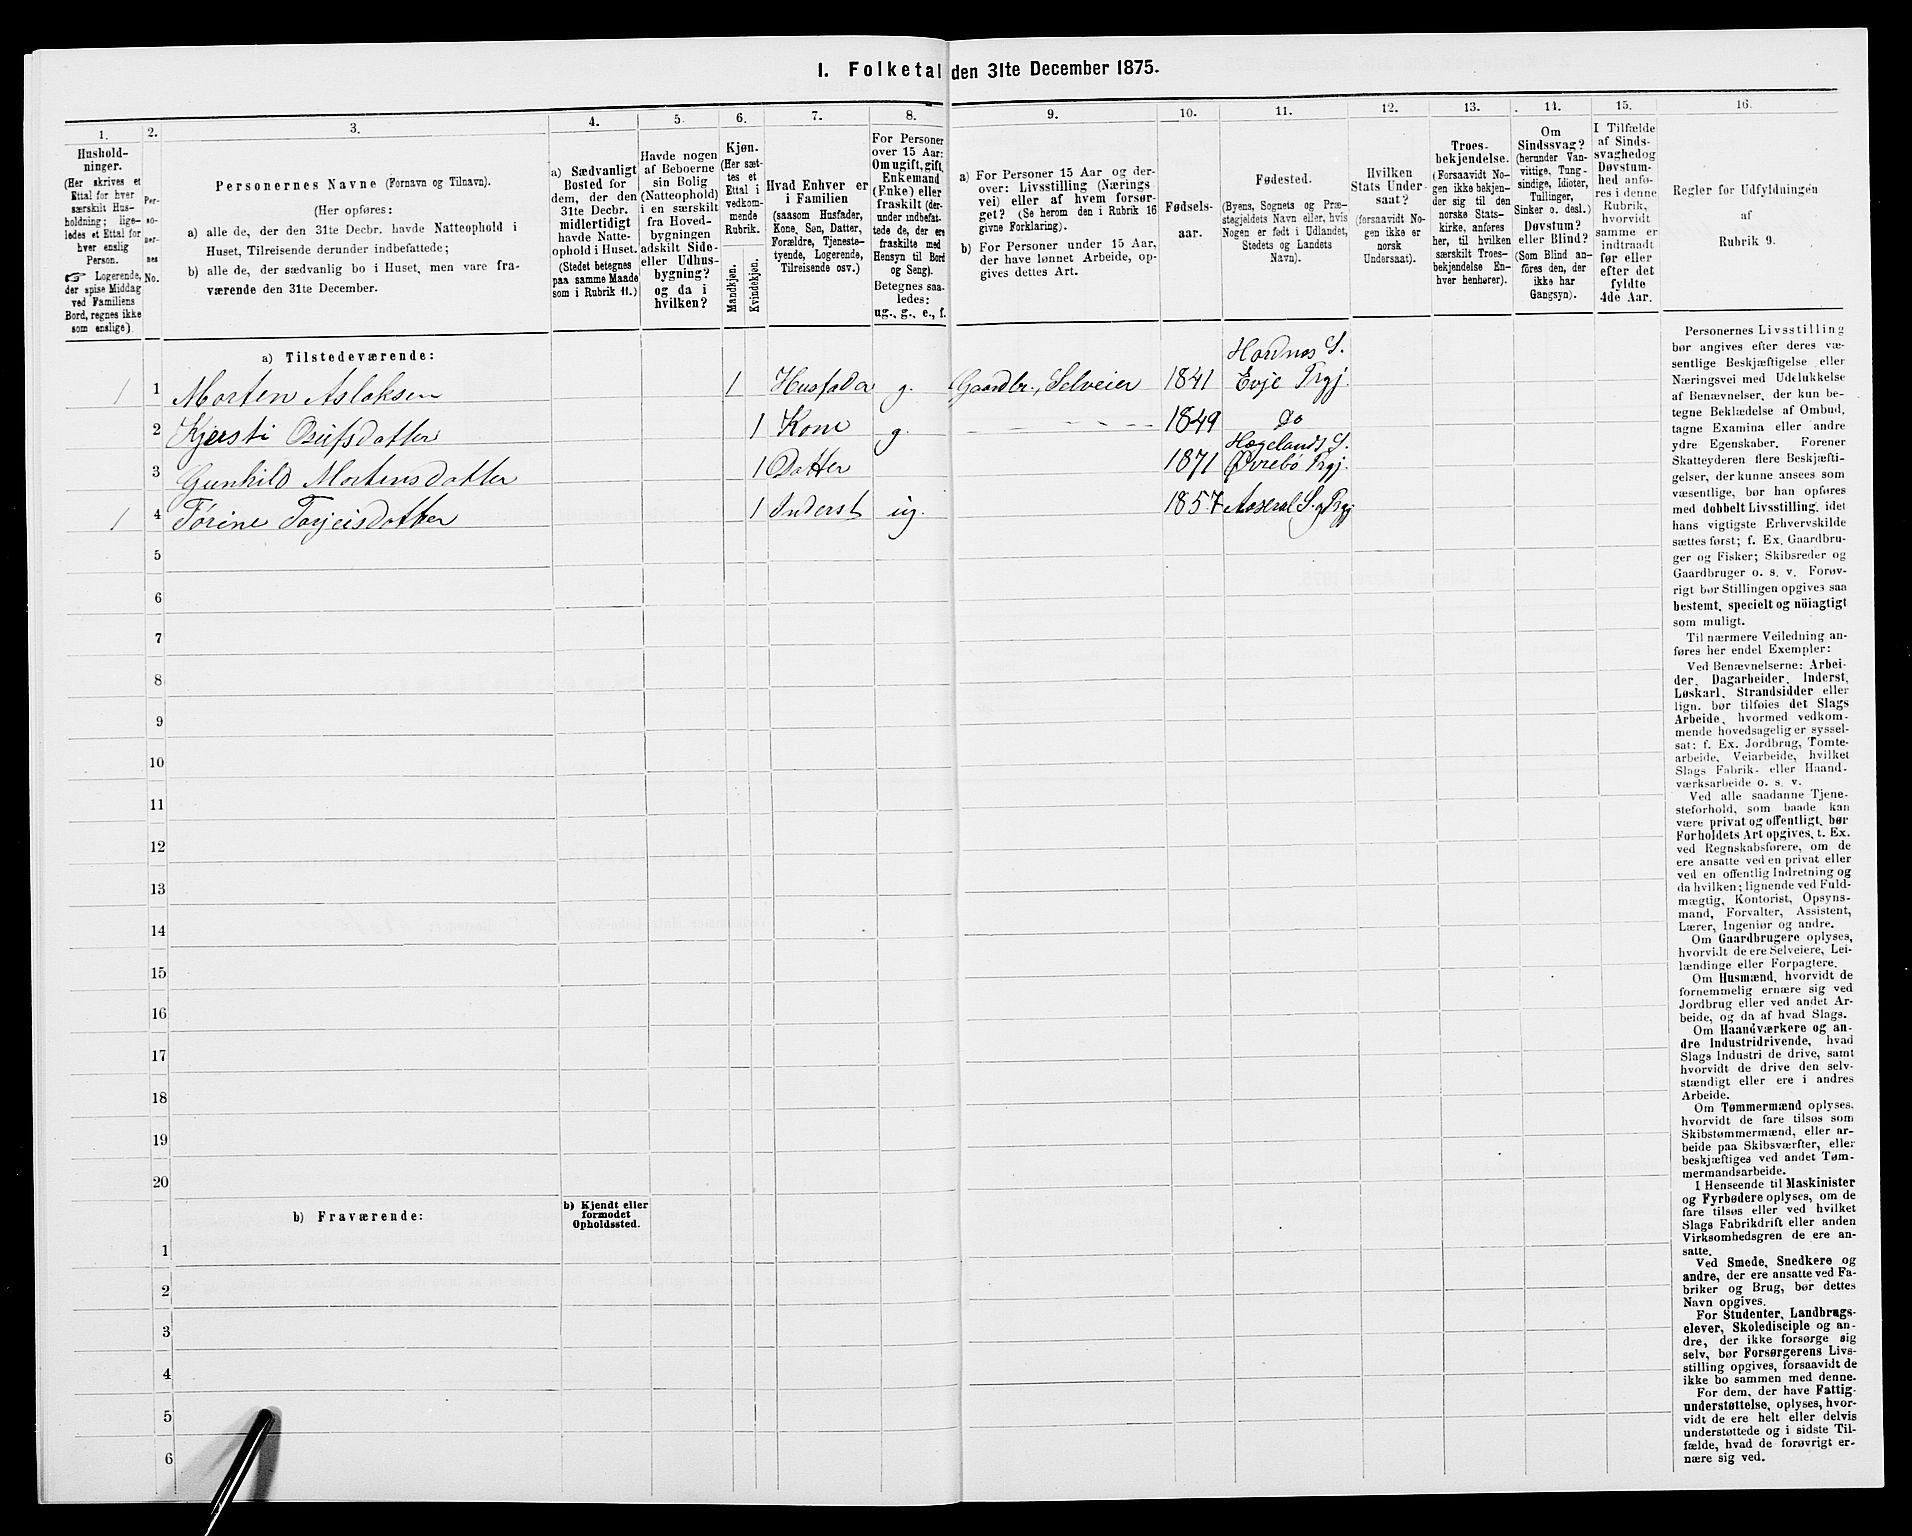 I. Folketal den 31te December 1875.
1.
Hushold-
ninger.
(Her skrives et
Ettal for hver
særskilt Hus-
holdning; lige-
ledes et Ettal for
hver enslig
Person.
☞ Logerende,
der spise Middag
ved Familiens
Bord, regnes ikke
som enslige).
2.
Per-
so-
ner-
nes
No.
3.
Personernes Navne (Fornavn og Tilnavn).
(Her opføres:
a) alle de, der den 31te Decbr. havde Natteophold i
Huset, Tilreisende derunder indbefattede;
b) alle de, der sædvanlig bo i Huset, men vare fra-
værende den 31te December.
4.
a) Sædvanligt
Bosted for
dem, der den
31te Decbr.
midlertidigt
havde Natte-
ophold i Huset.
(Stedet betegnes
paa samme Maade
som i Rubrik 11.)
5.
Havde nogen
af Beboerne
sin Bolig
(Natteophold)
i en særskilt
fra Hoved-
bygningen
adskilt Side-
eller Udhus-
bygning?
og da i
hvilken?
6.
Kjøn.
(Her sæt-
tes et
Ettal i
vedkom-
mende
Rubrik.
Mandkjøn.
Kvindekjøn.
7.
Hvad Enhver er
i Familien
(saasom Husfader,
Kone, Søn, Datter,
Forældre, Tjeneste-
tyende, Logerende,
Tilreisende osv.)
8.
For Personer
over 15 Aar:
Om ugift, gift,
Enkemand
(Enke) eller
fraskilt (der-
under indbefat-
tede de, der ere
fraskilte med
Hensyn til Bord
og Seng).
Betegnes saa-
ledes:
ug., g., e., f.
9.
a) For Personer 15 Aar og der-
over: Livsstilling (Nærings-
vei) eller af hvem forsør-
get? (Se herom den i Rubrik 16
givne Forklaring).
b) For Personer under 15 Aar,
der have lønnet Arbeide, op-
gives dettes Art.
10.
Fødsels-
aar.
11.
Fødested.
(Byens, Sognets og Præ-
stegjeldets Navn eller, hvis
Nogen er født i Udlandet,
Stedets og Landets
Navn).
12.
Hvilken
Stats Under-
saat?
(forsaavidt No-
gen ikke er
norsk
Undersaat).
13.
Troes-
bekjendelse.
(Forsaavidt No-
gen ikke bekjen-
der sig til den
norske Stats-
kirke, anføres
her, til hvilken
særskilt Troes-
bekjendelse En-
hver henhører).
14.
Om
Sindssvag?
(herunder Van-
vittige, Tung-
sindige, Idioter,
Tullinger,
Sinker o. desl.)
Døvstum?
eller Blind?
(Som Blind an-
føres den, der
ikke har
Gangsyn).
15.
I Tilfælde
af Sinds-
svaghed og
Døvstum-
hed anfø-
res i denne
Rubrik,
hvorvidt
samme er
indtraadt
før eller
efter det
fyldte
4de Aar.
16.
Regler for Udfyldningen
af
Rubrik 9.
a) Tilstedeværende:
Hordnes S.
1 1 Morten Aslaksen 1 Husfader g. Gaardbr., Selveier 1841 Evje Prgj.
2 Kjersti Osufsdatter 1 Kone g. 1849 do
Hægelands S.
3 Gunhild Mortensdatter 1 Datter 1871 Øvrebö Prgj.
1 4 Törine Torjeisdatter 1 Inderst ug. 1857 Aaseral S. og Prgj
5
6
7
8
9
10
11
12
13
14
15
16
17
18
19
20
b) Fraværende:
b) Kjendt eller
formodet
Opholdssted.
1
2
3
4
5
6
Personernes Livsstilling
bør angives efter deres væ-
sentlige Beskjæftigelse eller
Næringsvei med Udelukkelse
af Benævnelser, der kun be-
tegne Beklædelse af Ombud,
tagne Examina eller andre
ydre Egenskaber. Forener
Skatteyderen flere Beskjæfti-
gelser, der kunne ansees som
væsentlige, bør han opføres
med dobbelt Livsstilling, idet
hans vigtigste Erhvervskilde
sættes først; f. Ex. Gaardbru-
ger og Fisker; Skibsreder og
Gaardbruger o. s. v. Forøv-
rigt bør Stillingen opgives saa
bestemt, specielt og nöiagtigt
som muligt.
Til nærmere Veiledning an-
føres her endel Exempler:
Ved Benævnelserne: Arbei-
der, Dagarbeider, Inderst,
Løskarl, Strandsidder eller
lign. bør tilføies det Slags
Arbeide, hvormed vedkom-
mende hovedsagelig er syssel-
sat; f. Ex. Jordbrug, Tomte-
arbeide, Veiarbeide, hvilket
Slags Fabrik- eller Haand-
værksarbeide o. s. v.
Ved alle saadanne Tjene-
steforhold, som baade kan
være privat og offentligt, bør
Forholdets Art opgives, t. Ex.
ved Regnskabsførere, om de
ere ansatte ved en privat eller
ved en offentlig Indretning og
da hvilken; lignende ved Fuld-
mægtig, Kontorist, Opsyns-
mand, Forvalter, Assistent,
Lærer, Ingeniør og andre.
Om Gaardbrugere oplyses,
hvorvidt de ere Selveiere, Lei-
lændinge eller Forpagtere.
Om Husmænd, hvorvidt de
fornemmelig ernære sig ved
Jordbrug eller ved andet Ar-
beide, og da af hvad Slags.
Om Haandværkere og an-
dre Industridrivende, hvad
Slags Industri de drive, samt
hvorvidt de drive den selv-
stændigt eller ere i andres
Arbeide.
Om Tømmermænd oplyses,
hvorvidt de fare tilsøs som
Skibstømmermænd, eller ar-
beide paa Skibsværfter, eller
beskjæftiges ved andet Tøm-
mermandsarbeide.
I Henseende til Maskinister
og Fyrbødere oplyses, om de
fare tilsøs eller ved hvilket
Slags Fabrikdrift eller anden
Virksomhedsgren de ere an-
satte.
Ved Smede, Snedkere og
andre, der ere ansatte ved Fa-
briker og Brug, bør dettes
Navn opgives.
For Studenter, Landbrugs-
elever, Skoledisciple og an-
dre, der ikke forsørge sig
selv, bør Forsørgerens Livs-
stilling opgives, forsaavidt de
ikke bo sammen med denne.
For dem, der have Fattig-
understøttelse, oplyses, hvor-
vidt de ere helt eller delvis
understøttede og i sidste Til-
fælde, hvad de forøvrigt er-
nære sig ved.